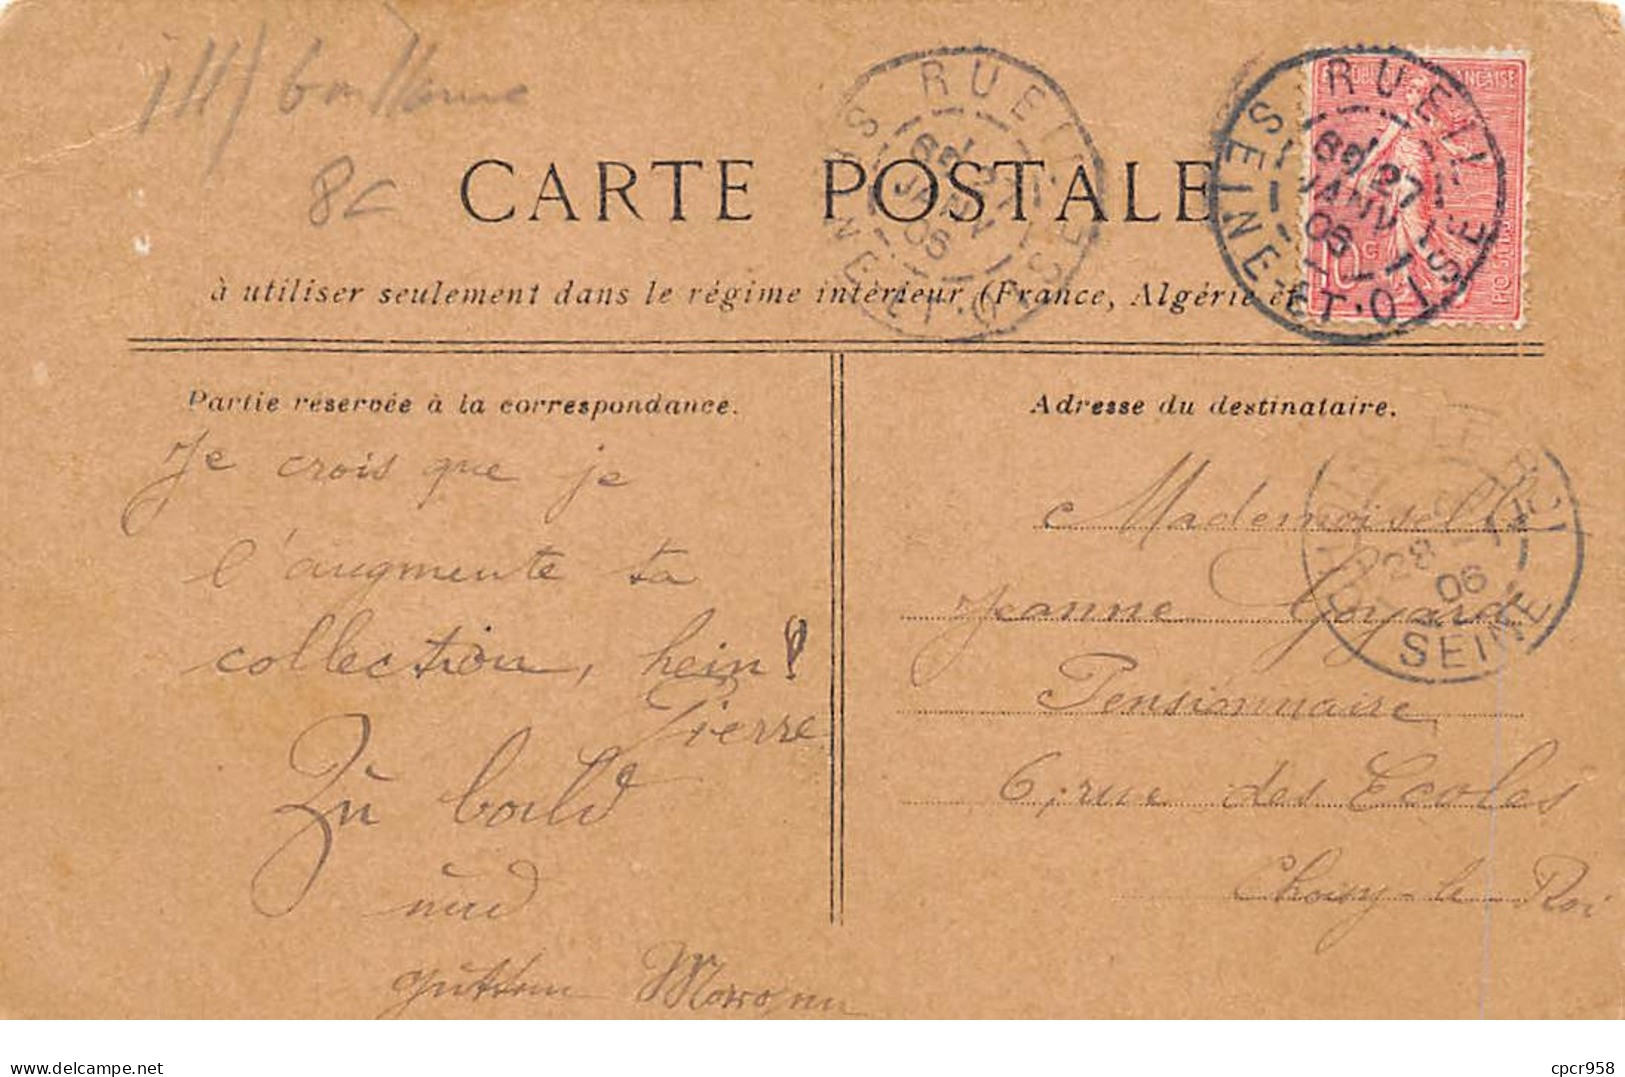 8c
CARTE POSTALE
à utiliser seulement dans le régime intérieur (France, Algérie et
RUEIL
SEINE-ET-OISE
27
JANV
06
RUEIL
SEINE-ET-OISE
8e 27
JANV
06
RÉPUBLIQUE FRANÇAISE
10 c
POSTES
Partie réservée à la correspondance.
Je crois que je
l'augmente ta
collection, hein!
Pierre
Zù bald
und
gutten Morgen
Adresse du destinataire.
Mademoiselle
Jeanne Goyard
Pensionnaire
6, rue des Ecoles
Choisy-le-Roi
28
06
SEINE
delcampe.net
cpcr958